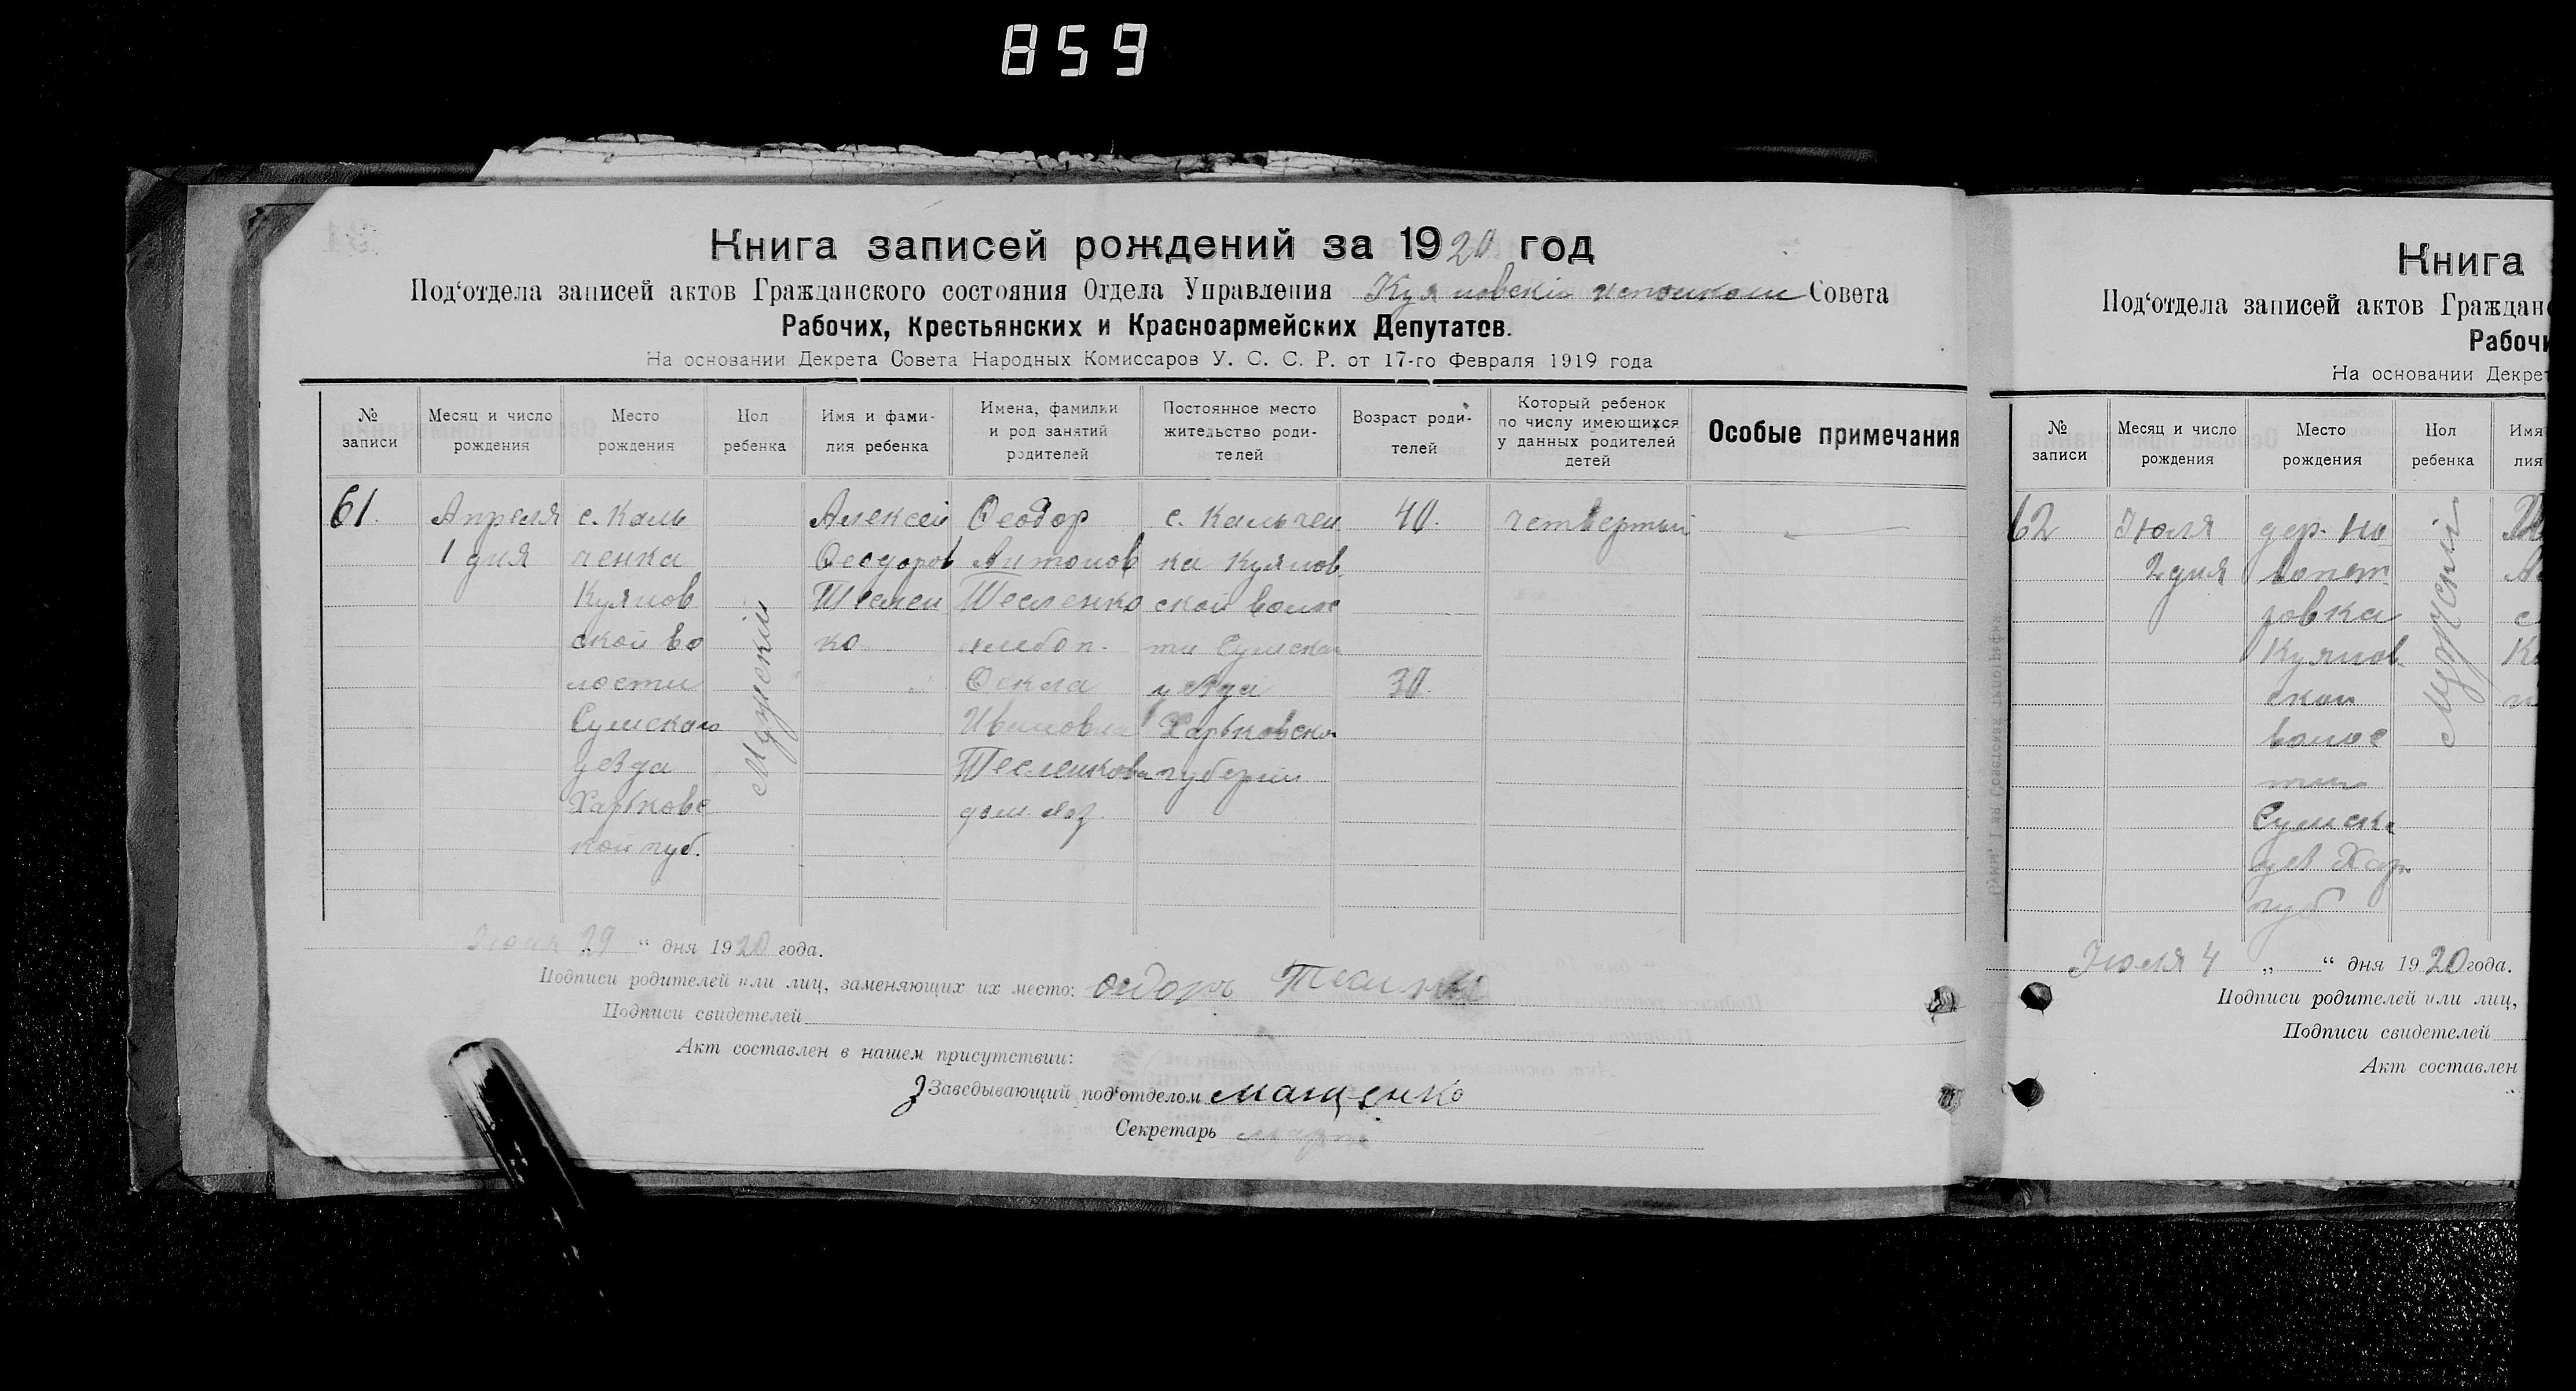 859
Книга записей рождений за 1920 год
Под‘отдела записей актов Гражданского состояния Отдела Управления Куяновскій исполком Совета
Рабочих, Крестьянских и Красноармейских Депутатов.
На основании Декрета Совета Народных Комиссаров У. С. С. Р. от 17-го Февраля 1919 года
№ записи
Месяц и число рождения
Место рождения
Пол ребенка
Имя и фами-
лия ребенка
Имена, фамилии
и род занятий
родителей
Постоянное место
жительство роди-
телей
Возраст роди-
телей
Который ребенок
по числу имеющихся
у данных родителей
детей
Особые примечания
61.
Апреля
1 дня
с. Каль
ченка
Куянов
ской во
лости
Сумского
уезда
Харьковс
кой губ.
Мужский
Алексей
Феодоров
Теслен
ко
Феодор
Антонов
Тесленко
хлебоп.
Фекла
Ивановна
Тесленкова
дом. хоз.
с. Кальчен
ка Куянов
ской волос
ти Сумской
уезда
Харьковской
губернии
40.
30.
четвертый
29 “ дня 1920 года.
Подписи родителей или лиц, заменяющих их место: Феодоръ Тесленко
Подписи свидетелей
Акт составлен в нашем присутствии:
Заведывающий под‘отделом Мащенко
Секретарь
Книга
Под‘отдела записей актов Граждан
Рабочи
На основании Декрет
№ записи
Месяц и число рождения
Место рождения
Пол ребенка
Имя
лия
62
Июля
2 дня
дер. Но
вопет
ровка
Куянов
ской
волос
ти
Сумска
уез Хар.
губ
Мужский
Июля 4 „ “ дня 1920 года.
Подписи родителей или лиц,
Подписи свидетелей
Акт составлен